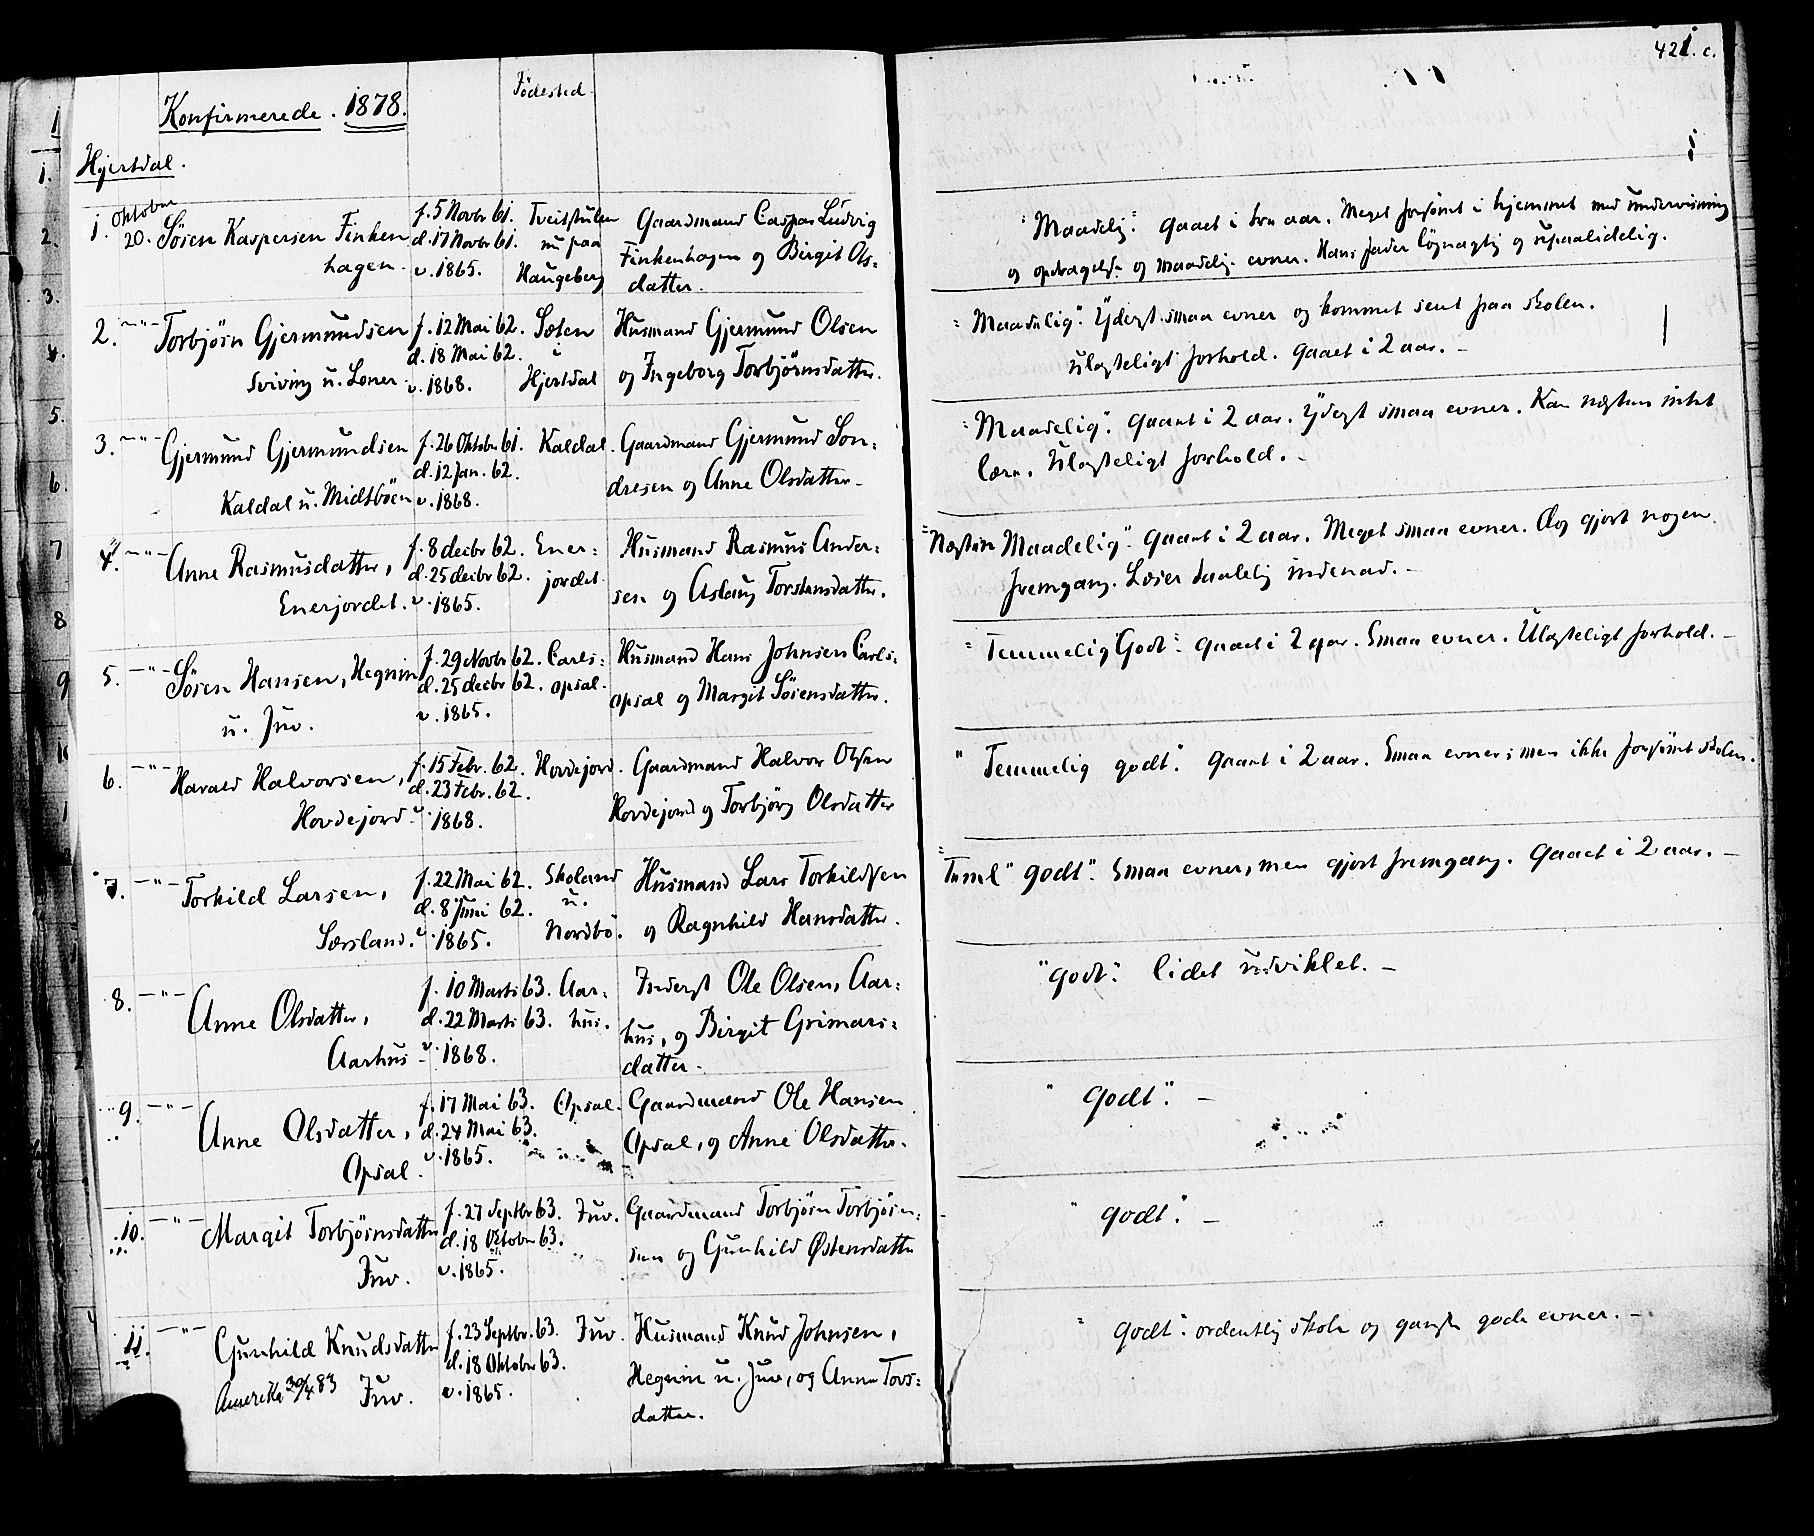 421.c.
Konfirmerede. 1878.
Födested.
Hjertdal.
1. Oktober 20. Sören Kaspersen Finken
hagen.
f. 5 Novbr 61.
d. 17 Novbr 61.
v. 1865.
Tveitstulen
nu paa
Haugeberg
Gaardmand Caspar Ludvig
Finkenhagen og Birgit Ols=
datter.
"Maadelig." Gaaet i tre aar. Meget forsömt i hjemmet med undervisning
og opdragelse og maadelig evner. Hans fader lögnagtig og upaalidelig.
2. —"— Torbjörn Gjermundsen
Sviving u. Loner.
f. 12 Mai 62.
d. 18 Mai 62.
v. 1868.
Sæten
i
Hjertdal
Husmand Gjermund Olsen
og Ingeborg Torbjörnsdatter.
"Maadelig". Yderst smaa evner og kommet sent paa skolen.
Ulasteligt forhold. Gaaet i 2 aar. —
3. —"— Gjermund Gjermundsen
Kaldal u. Midtböen
f. 26 Oktober 61.
d. 12 Jan. 62.
v. 1868.
Kaldal.
Gaardmand Gjermund Son=
dresen og Anne Olsdatter.
"Maadelig". Gaaet i 2 aar. Yderst smaa evner. Kan næsten intet
lære. Ulasteligt forhold. —
4. —"— Anne Rasmusdatter,
Enerjordet.
f. 8 decbr 62.
d. 25 decbr 62.
v. 1865.
Ener=
jordet.
Husmand Rasmus Ander=
sen og Aslaug Torstensdatter.
"Næsten Maadelig". Gaaet i 2 aar. Meget smaa evner. Dog gjort nogen
fremgang. Læser taalelig indenad. —
5. —"— Sören Hansen, Hegnin
u. Juv.
f. 29 Novbr 62.
d. 25 decbr 62.
v. 1865.
Carls=
opsal.
Husmand Hans Johnsen Carls=
opsal og Margit Sörensdatter.
"Temmelig Godt". Gaaet i 2 aar. Smaa evner. Ulasteligt forhold. —
6. —"— Harald Halvorsen,
Hovdejord.
f. 15 Febr. 62.
d. 23 Febr. 62.
v. 1868.
Hovdejord.
Gaardmand Halvor Olsen
Hovdejord og Torbjörg Olsdatter
"Temmelig godt". Gaaet i 2 aar. Smaa evner; men ikke forsömt skolen.
7. —"— Torkild Larsen,
Særsland.
f. 22 Mai 62.
d. 8 Juni 62.
v. 1865.
Skoland
u.
Nordbö.
Husmand Lars Torkildsen
og Ragnhild Hansdatter.
"Teml" godt". Smaa evner, men gjort fremgang. Gaaet i 2 aar. —
8. —"— Anne Olsdatter,
Aarhus
f. 10 Marts 63.
d. 22 Marts 63.
v. 1868.
Aar=
hus.
Inderst Ole Olsen, Aar=
hus, og Birgit Grimars=
datter.
"Godt". lidet udviklet. —
9. —"— Anne Olsdatter,
Opsal.
f. 17 Mai 63.
d. 24 Mai 63.
v. 1865.
Opsal.
Gaardmand Ole Hansen
Opsal, og Anne Olsdatter.
"Godt". —
10. —"— Margit Torbjörnsdatter
Juv.
f. 27 Septbr 63.
d. 18 Oktober 63.
v. 1865.
Juv.
Gaardmand Torbjörn Torbjörn=
sen og Gunhild Østensdatter
"Godt". —
11. —"— Gunhild Knudsdatter
Amerika 30/4 83 Juv.
f. 23 Septbr. 63.
d. 18 Oktober 63.
v. 1865.
Juv.
Husmand Knud Johnsen,
Hegnin u. Juv, og Anne Tovs=
datter.
"Godt". ordentlig skole og ganske gode evner. —